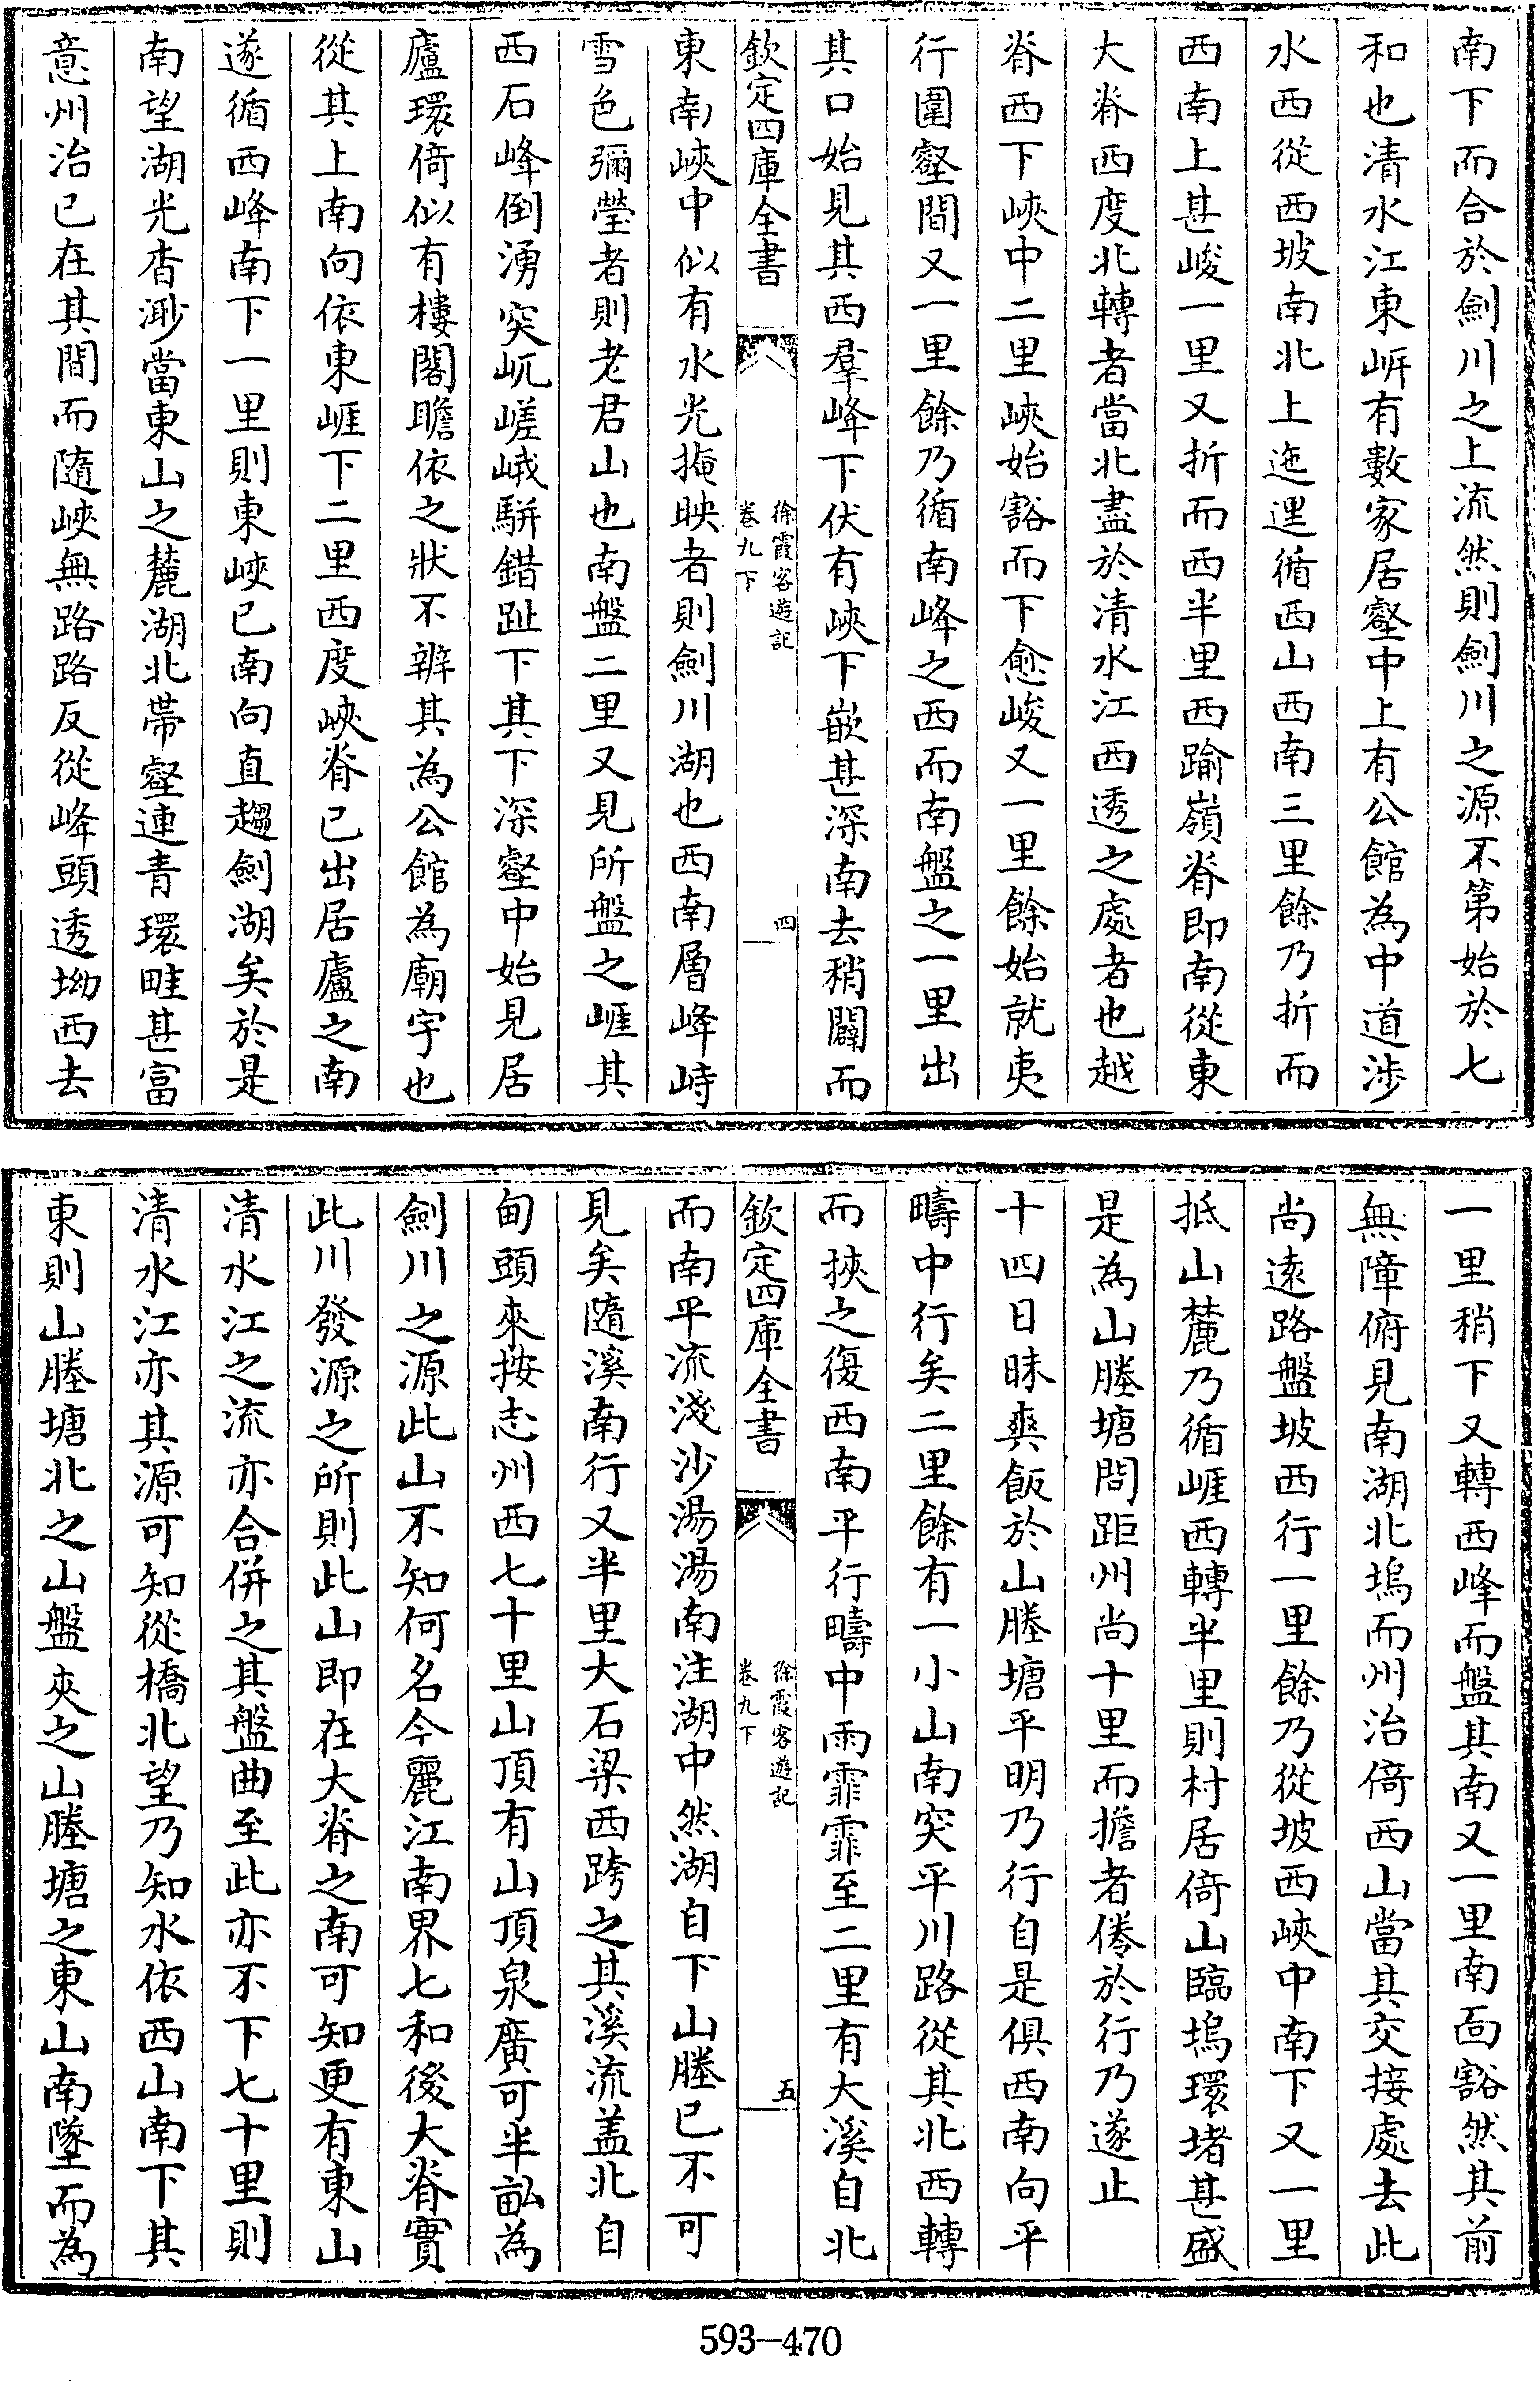 南下而合於劍川之上流然則劍川之源不第始於七
和也清水江東岍有數家居壑中上有公館為中道涉
水西從西坡南北上迤逥循西山西南三里餘乃折而
西南上甚峻一里又折而西半里西踰嶺脊即南從東
大脊西度北轉者當北盡於清水江西透之處者也越
脊西下峽中二里峽始豁而下愈峻又一里餘始就夷
行圍壑間又一里餘乃循南峰之西而南盤之一里出
其口始見其西羣峰下伏有峽下嵌甚深南去稍闢而
欽定四庫全書
徐霞客遊記
卷九下
四
東南峽中似有水光掩映者則劍川湖也西南層峰峙
雪色彌瑩者則老君山也南盤二里又見所盤之崕其
西石峰倒湧突屼嵯峨駢錯趾下其下深壑中始見居
廬環倚似有樓閣瞻依之狀不辨其為公館為廟宇也
從其上南向依東崕下二里西度峽脊已出居廬之南
遂循西峰南下一里則東峽已南向直趨劍湖矣於是
南望湖光杳渺當東山之麓湖北帶壑連青環畦甚富
意州治已在其間而隨峽無路路反從峰頭透坳西去
一里稍下又轉西峰而盤其南又一里南面豁然其前
無障俯見南湖北塢而州治倚西山當其交接處去此
尚遠路盤坡西行一里餘乃從坡西峽中南下又一里
抵山麓乃循崕西轉半里則村居倚山臨塢環堵甚盛
是為山塍塘問距州尚十里而擔者倦於行乃遂止
十四日昧爽飯於山塍塘平明乃行自是俱西南向平
疇中行矣二里餘有一小山南突平川路從其北西轉
而挾之復西南平行疇中雨霏霏至二里有大溪自北
欽定四庫全書
徐霞客遊記
卷九下
五
而南平流淺沙湯湯南注湖中然湖自下山塍已不可
見矣隨溪南行又半里大石梁西跨之其溪流盖北自
甸頭來按志州西七十里山頂有山頂泉廣可半畝為
劍川之源此山不知何名今麗江南界七和後大脊實
此川發源之所則此山即在大脊之南可知更有東山
清水江之流亦合併之其盤曲至此亦不下七十里則
清水江亦其源可知從橋北望乃知水依西山南下其
東則山塍塘北之山盤夾之山塍塘之東山南墜而為
593-470